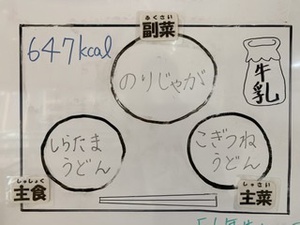 ふくさい
副菜
647kcal
のりじゃが
牛乳
しらたま
うどん
こぎつね
うどん
しゅしょく
主食
しゅさい
主菜